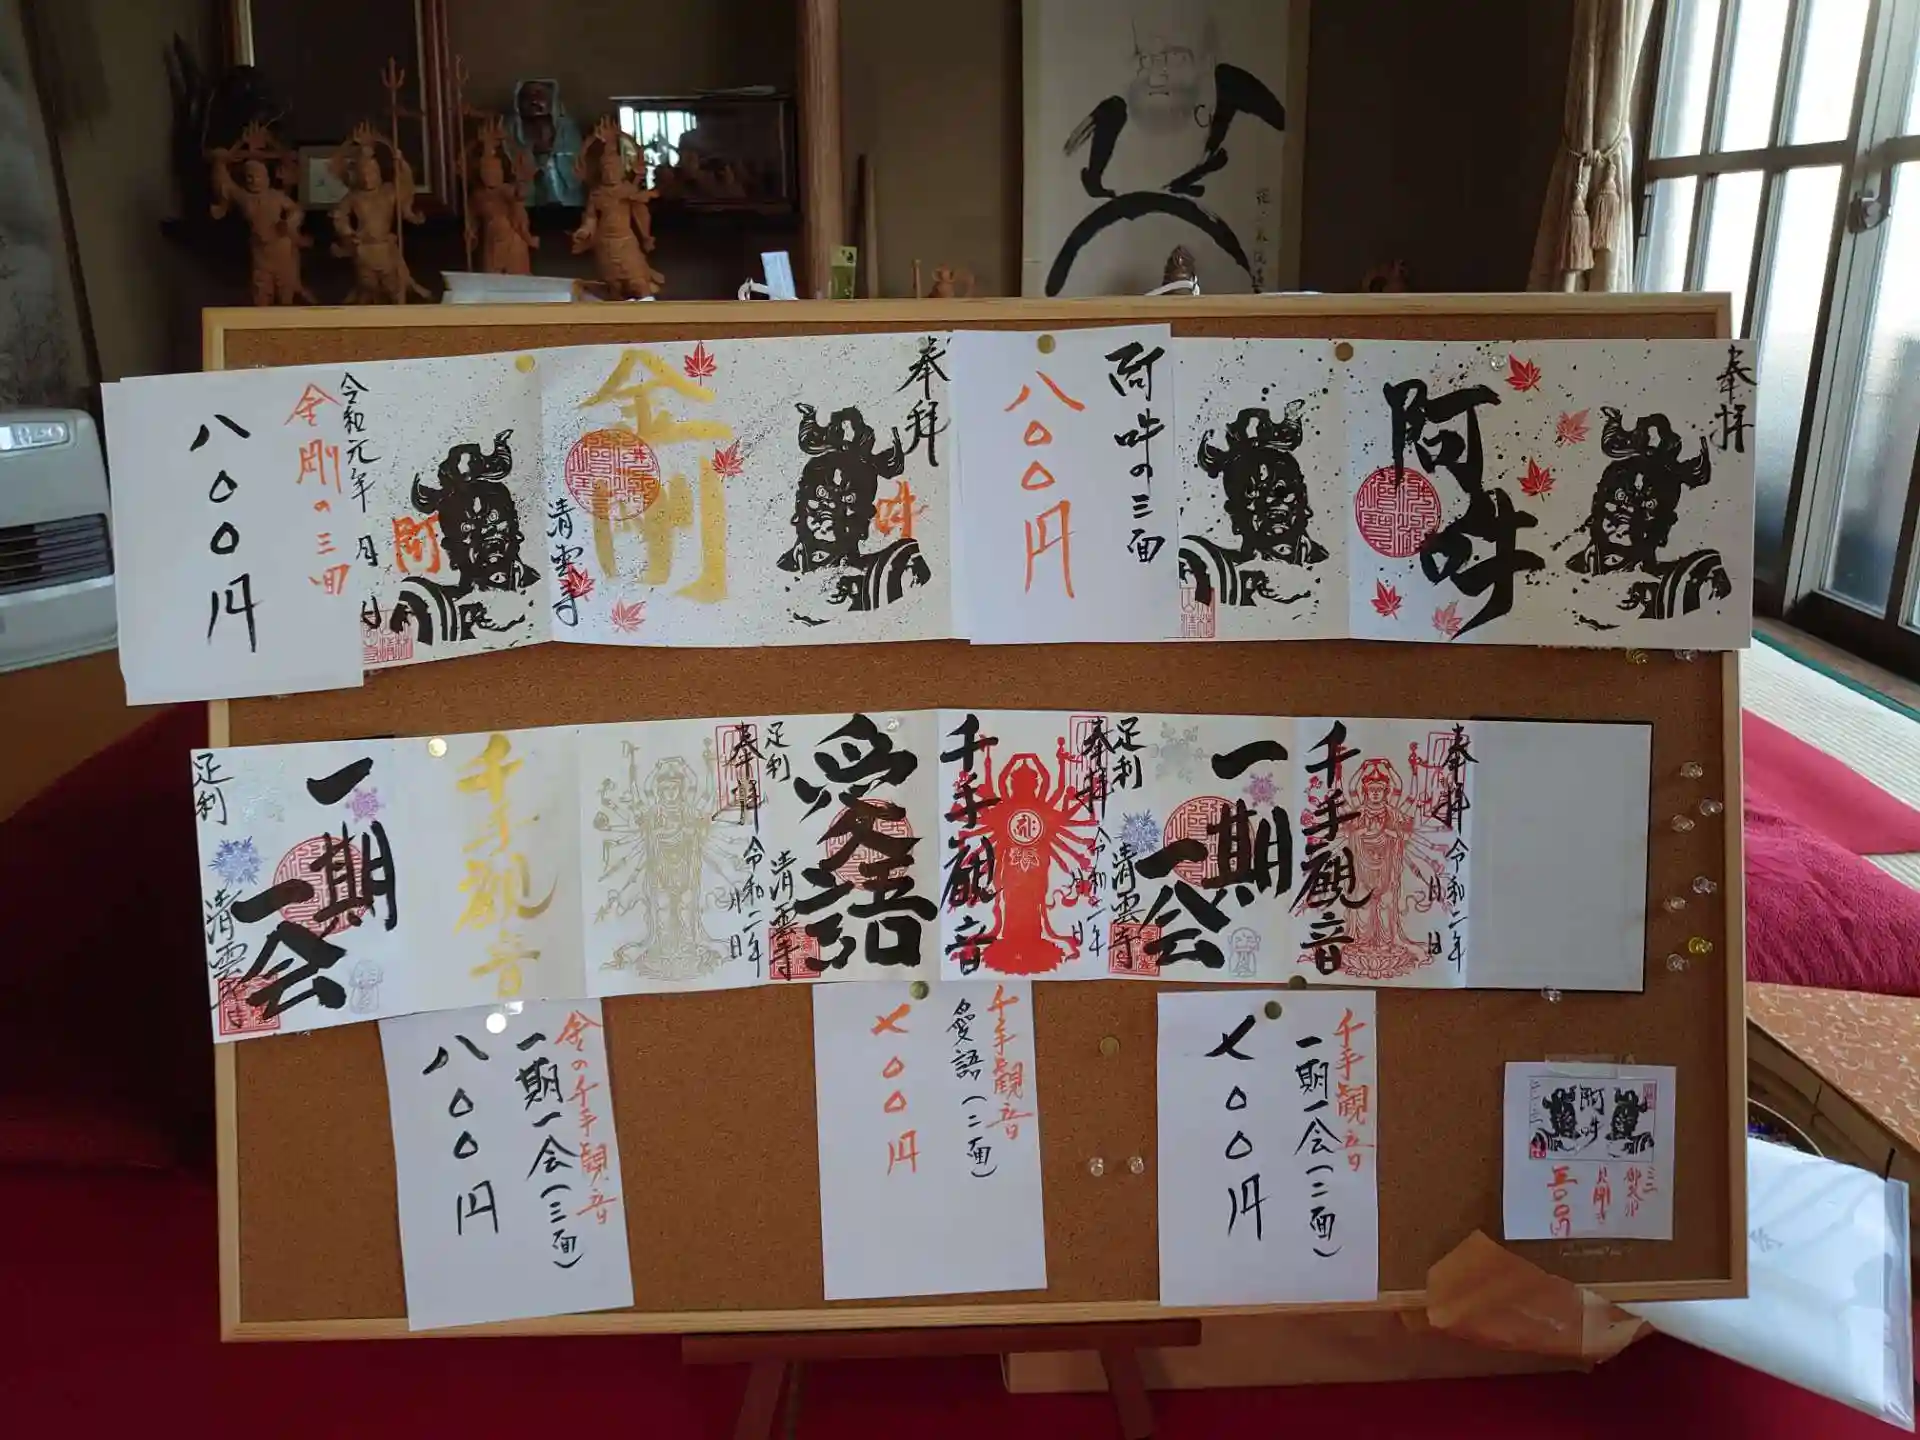 奉拝
阿吽
阿吽の三面
八〇〇円
奉拝
吽
金剛
清雲寺
阿
令和元年 月 日
金剛の三面
八〇〇円
奉拝
令和二年 月 日
千手観音
一期
一会
足利
清雲寺
奉拝
令和二年 月 日
千手観音
愛語
足利
清雲寺
奉拝
令和二年 月 日
千手観音
一期
一会
足利
清雲寺
千手観音
一期一会(二面)
七〇〇円
千手観音
愛語(二面)
七〇〇円
金の千手観音
一期一会(三面)
八〇〇円
阿吽
ミニ
御朱印
五〇〇円